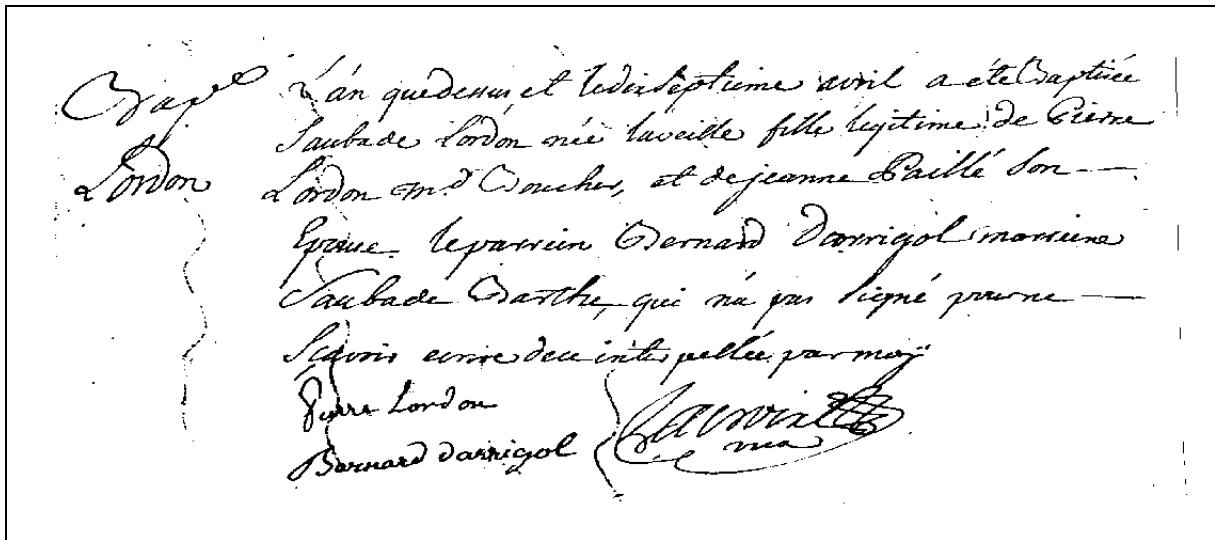 Bap.
Lordon
L'an que dessus, et le dix septieme avril a été Baptisée
Saubade Lordon née la veille fille legitime de Pierre
Lordon md Boucher, et de jeanne Paillé Son
Epouse le parrein Bernard Darrigol marreine
Saubade Barthe, qui n'a pas signé pour ne
Scavoir ecrire de ce interpellée par moy
Pierre Lordon
Bernard darrigol